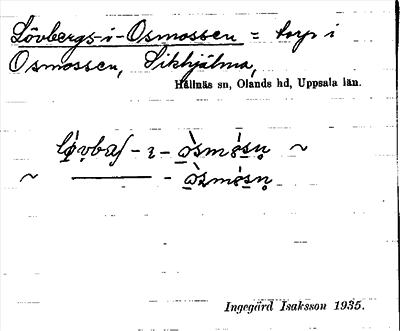 Lövbergs-i-Osmossen = torp i
Osmossen, Sikhjälma,
Hållnäs sn, Olands hd, Uppsala län.
~
~
Ingegärd Isaksson 1935.